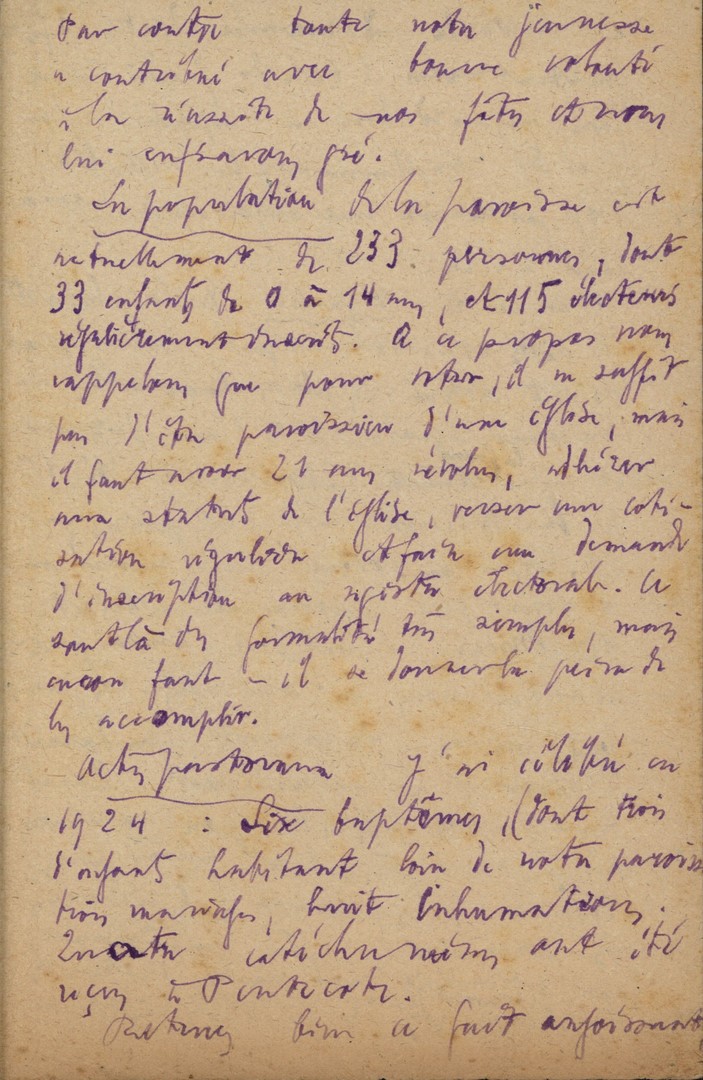 Par contre toute notre jeunesse
a contribué avec bonne volonté
à la réussite de nos fêtes et nous
lui en savons gré.
La population de la paroisse est
actuellement de 233 personnes, dont
33 enfants de 0 à 14 ans, et 115 électeurs
régulièrement inscrits. A ce propos nous
rappelons que pour voter, il ne suffit
pas d'être paroissien d'une Eglise, mais
il faut avoir 21 ans révolus, adhérer
aux statuts de l'Eglise, verser une coti-
sation régulière et faire une demande
d'inscription au registre électoral. Ce
sont là des formalités très simples, mais
encore faut-il se donner la peine de
les accomplir.
Actes pastoraux J'ai célébré en
1924 : Six baptêmes, (dont trois
d'enfants habitant loin de notre paroisse
trois mariages, huit inhumations.
Quatre catéchumènes ont été
reçus à Pentecôte.
Retenez bien ce fait angoissant